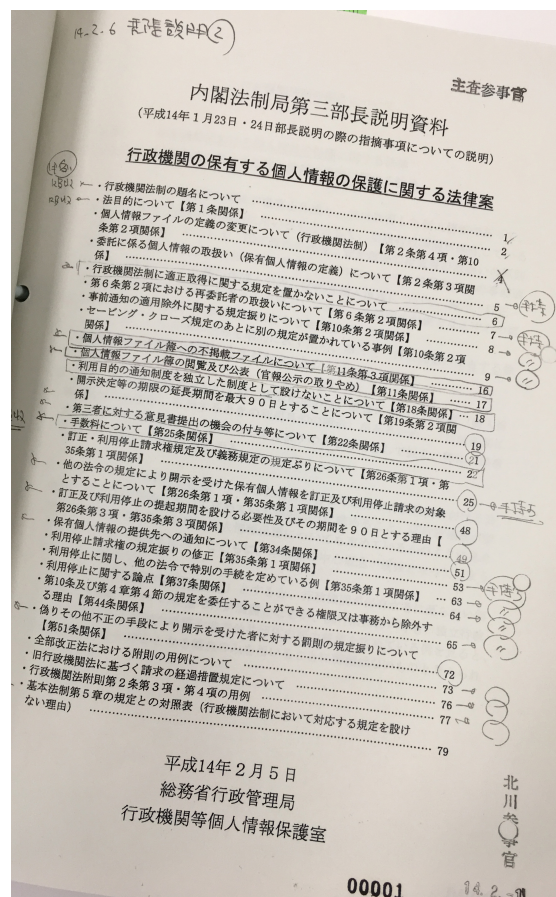 14.2.6
主査参事官
内閣法制局第三部長説明資料
（平成14年1月23日・24日部長説明の際の指摘事項についての説明）
行政機関の保有する個人情報の保護に関する法律案
・行政機関法制の題名について ………… 1
・法目的について【第1条関係】 ………… 2
・個人情報ファイルの定義の変更について（行政機関法制）【第2条第4項・第10
条第2項関係】 ………… 4
・委託に係る個人情報の取扱い（保有個人情報の定義）について【第2条第3項関
係】 ………… 5
・行政機関法制に適正取得に関する規定を置かないことについて ………… 6
・第6条第2項における再委託者の取扱いについて【第6条第2項関係】 ………… 7
・事前通知の適用除外に関する規定振りについて【第10条第2項関係】 ………… 8
・セービング・クローズ規定のあとに別の規定が置かれている事例【第10条第2項
関係】 ………… 9
・個人情報ファイル簿への不掲載ファイルについて【第11条第3項関係】 ………… 16
・個人情報ファイル簿の閲覧及び公表（官報公示の取りやめ）【第11条関係】 ………… 17
・利用目的の通知制度を独立した制度として設けないことについて【第18条関係】 … 18
・開示決定等の期限の延長期間を最大90日とすることについて【第19条第2項関
係】 ………… 19
・第三者に対する意見書提出の機会の付与等について【第22条関係】 ………… 21
・手数料について【第25条関係】
・訂正・利用停止請求権規定及び義務規定の規定ぶりについて【第26条第1項・第
35条第1項関係】 ………… 25
・他の法令の規定により開示を受けた保有個人情報を訂正及び利用停止請求の対象
とすることについて【第26条第1項・第35条第1項関係】 ………… 48
・訂正及び利用停止の提起期間を設ける必要性及びその期間を90日とする理由【
第26条第3項・第35条第3項関係】 ………… 49
・保有個人情報の提供先への通知について【第34条関係】 ………… 51
・利用停止請求権の規定振りの修正【第35条第1項関係】 ………… 53
・利用停止に関し、他の法令で特別の手続を定めている例【第35条第1項関係】 … 63
・利用停止に関する論点【第37条関係】 ………… 64
・第10条及び第4章第4節の規定を委任することができる権限又は事務から除外す
る理由【第44条関係】 ………… 65
・偽りその他不正の手段により開示を受けた者に対する罰則の規定振りについて
【第51条関係】 ………… 72
・全部改正法における附則の用例について ………… 73
・旧行政機関法に基づく請求の経過措置規定について ………… 76
・行政機関法附則第2条第3項・第4項の用例 ………… 77
・基本法制第5章の規定との対照表（行政機関法制において対応する規定を設け
ない理由） ………… 79
平成14年2月5日
総務省行政管理局
行政機関等個人情報保護室
北川参事官
00001